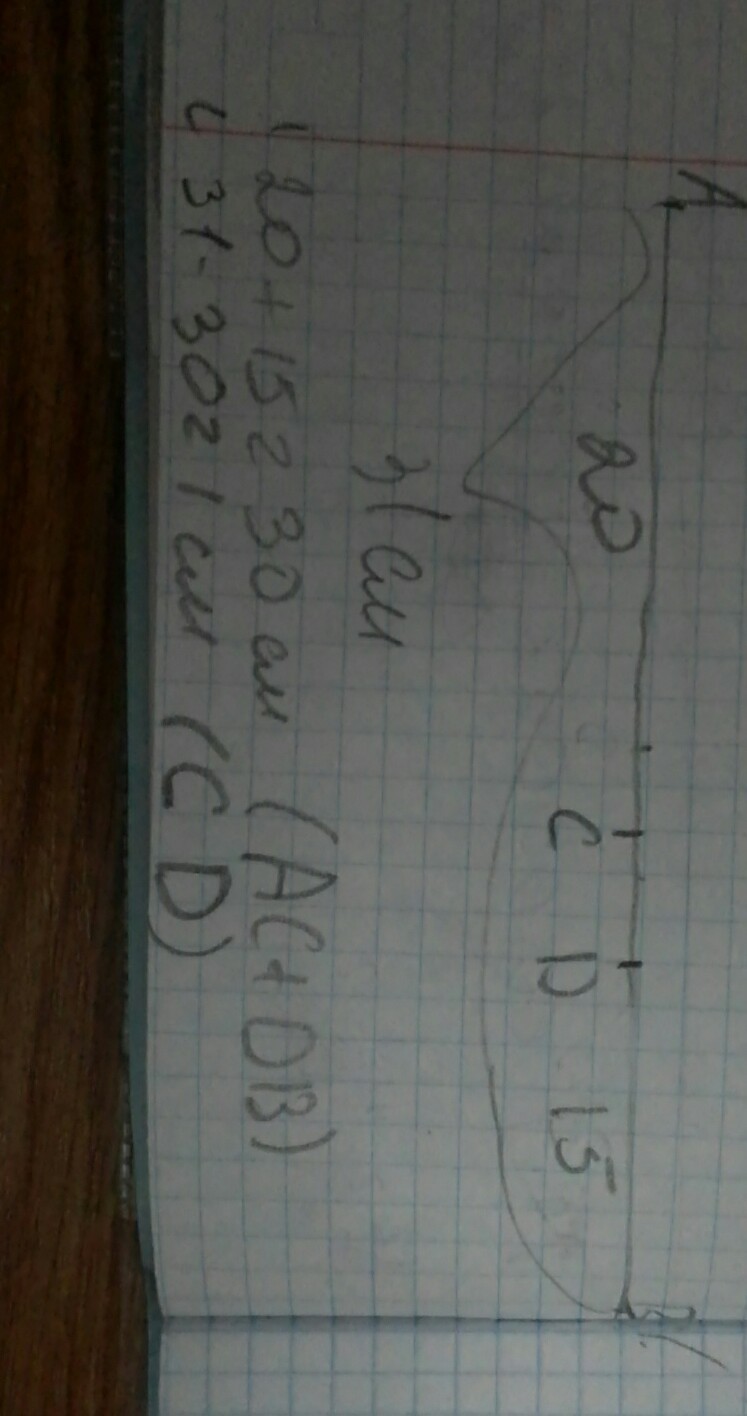 A B
20 C D 15
31 см
1) 20 + 15 = 30 см (AC + DB)
31 - 30 = 1 см (CD)